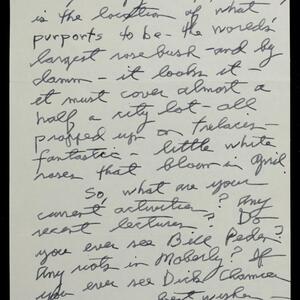 is the location of what
purports to be - the worlds'
largest rose bush - and by
damn - it looks it -
it must cover almost a
half a city lot - all
propped up on trelaces -
fantastic - little white
roses that bloom in April.
So, what are your
current activities? Any
recent lectures? Do
you ever see Bill Peden?
Any riots in Moberly? If
you ever see Dick
best wishes -